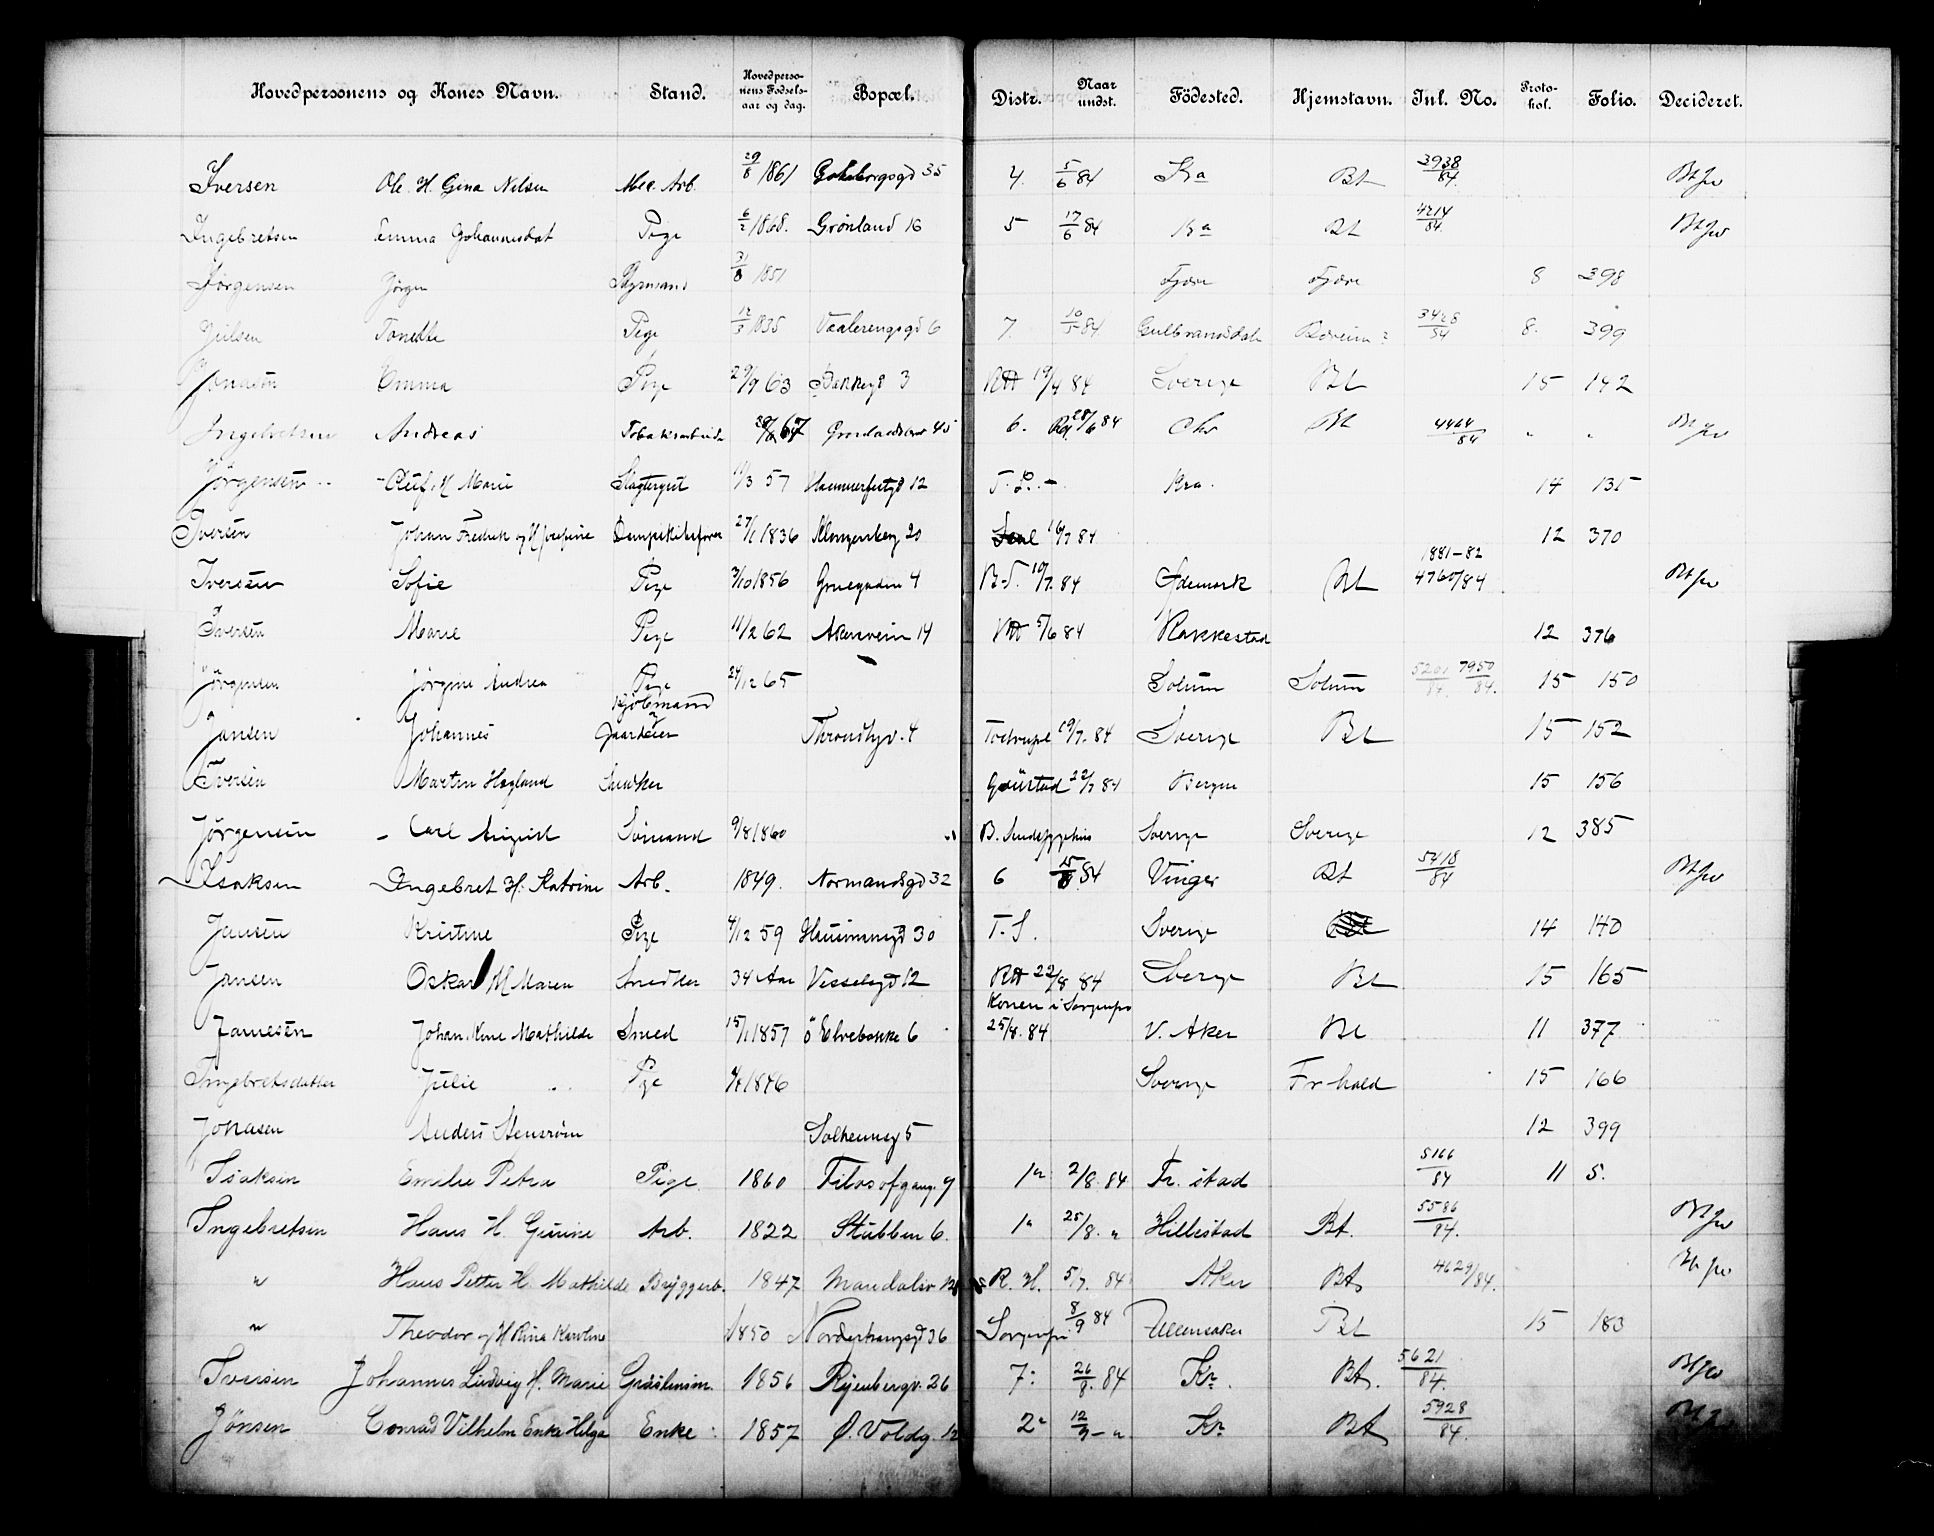 Hovedpersonens og Kones Navn. Stand. Hovedpersonens Fødselsaar og dag. Bopæl. Distr. Naar undst. Födested. Hjemstavn. Jnl. No. Protokol. Folio. Decideret.
Iversen Ole H. Gina Nilsen Mec. Arb. 29/8 1861 35 4. 5/6 84 Kra Bt 3938/84 Bt jw
Ingebretsen Emma Johannesdat Pige 6/2 1868. Grönland 16 5 17/6 84 Kra Bt 4214/84 Bt jw
Jörgensen Jörgen Styrmand 31/8 1851 Fjære Fjære 8 398
Julsen Tonette Pige 12/3 1835 Vaalerengsgd 6 7. 10/5 84 Gulbrandsdale 3428/84 8. 399
Jonasen Emma Pige 29/9 63 Bakkegd 3 RH 19/7 84 Sverige Bt 15 142
Ingebretsen Andreas Tobaksarbeide 67 45 6. 28/6 84 Chr Bt 4464/84 " " Bt jw
Jörgensen Oluf H Marie 11/3 57 Hammerfestgd 12 T. L. - Kra. 14 135
Iversen Johan Fredrik og H Josefine 27/1 1836 Klingenberg 20 16/7 84 12 370
Iversen Sofie Pige 3/10 1856 Gruegaden 4 10/7. 84 Ødemark Bt 1881-82 4760/84 Bt jw
Iversen Marie Pige 11/2 62 Akersveien 14 5/6 84 Rakkestad 12 376
Jörgensen Jörgine Andrea Pige 24/12 65 Solum Solum 5201/84 7950/84. 15 150
Jansen Johannes Kjöbmand Gaardeier Throndhjv. 4 19/7. 84 Sverige Bt 15 152
Iversen Martin Hagland Snedker Gaustad 22/7 84 Bergen 15 156
Jörgensen - Carl August Sömand 9/8 1860 " B. Sverige Sverige 12 385
Isaksen Ingebret H. Katrine Arb. 1849. Normandsgd 32 6 15/8 84 Vinger Bt 5418/84 Bt jw
Jansen Kristine Pige 4/12 59 Hausmansgd 30 T. S. Sverige 14 140
Jansen Oskar H Maren Snedker 34 Aar Vesselsgd 12 RH 22/8 84 Sverige Bt 15 165
Jamesen Johan Kone Mathilde Smed 15/1 1857 Ö Elvebakke 6 Konen i Sorgenfri 25/8. 84 V. Aker Bt 11 377
Ingebretsdatter Julie Pige 1846 Sverige Fr hald 15 166
Jonasen Anders Stenström 5 12 399
Isaksen Emilie Petra Pige 1860 Filosofgang. 9 1a 2/8. 84 Fr. stad 5166/84 11 5.
Ingebretsen Hans H. Gurine Arb. 1822 Stubben 6. 1a 25/8. " Hillestad Bt. 5586/84. Bt jw
" Hans Petter H. Mathilde Bryggerb. 1847 R. H. 5/7. 84 Aker Bt 4629/84. Bt jw
" Theodor og H Rina Karoline 1850 36 Sorgenfri 8/9 84 Ullensaker Bt 15 183
Iversen Johannes Ludvig H. Marie 1856 Ryenbergv. 26 7. 26/8. 84 Kr. Bt. 5621/84. Bt jw
Jönsen Conrad Vilhelm Enke Helga Enke 1857 Ø. Voldg 12 2a 12/9 - " Kr. Bt 5928/84. Bt jw